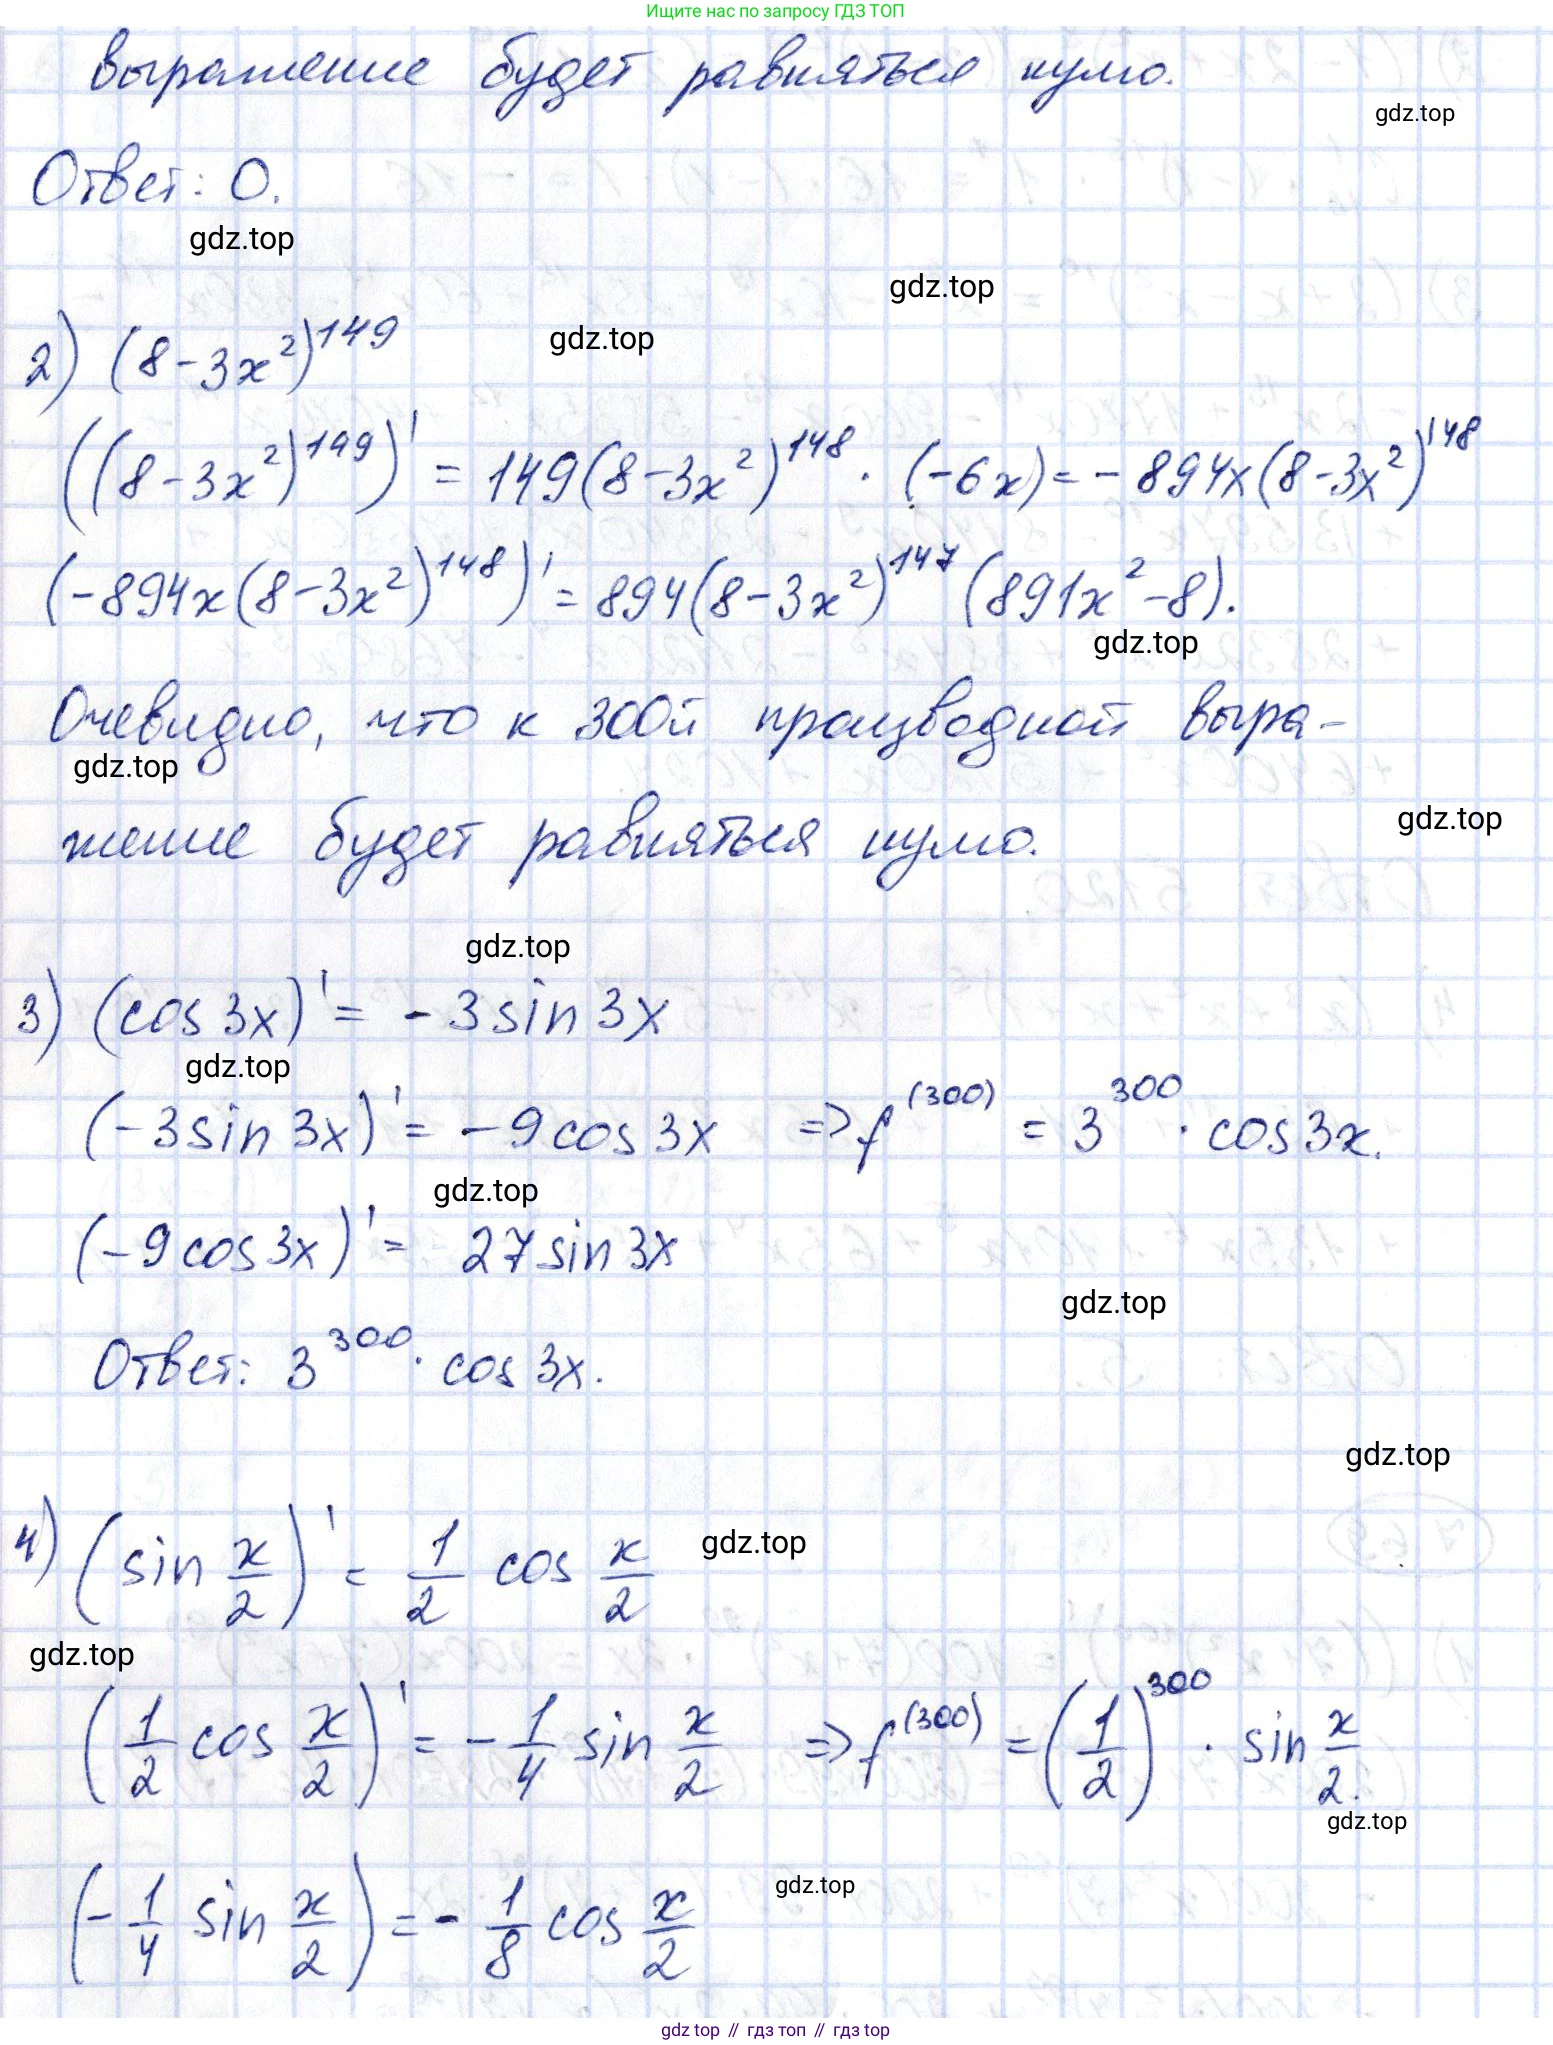 Ищите нас по запросу ГДЗ ТОП
выражение будет равняться нулю.
gdz.top
Ответ: 0.
gdz.top
gdz.top
2) (8-3x²)¹⁴⁹
gdz.top
((8-3x²)¹⁴⁹)' = 149(8-3x²)¹⁴⁸ · (-6x) = -894x(8-3x²)¹⁴⁸
(-894x(8-3x²)¹⁴⁸)' = 894(8-3x²)¹⁴⁷ (891x²-8).
gdz.top
Очевидно, что к 300й производной выра-
gdz.top
gdz.top
жение будет равняться нулю.
gdz.top
3) (cos 3x)' = -3 sin 3x
gdz.top
(-3 sin 3x)' = -9 cos 3x => f⁽³⁰⁰⁾ = 3³⁰⁰ · cos 3x.
gdz.top
(-9 cos 3x)' = 27 sin 3x
gdz.top
Ответ: 3³⁰⁰ · cos 3x.
gdz.top
4) (sin x/2)' = 1/2 cos x/2
gdz.top
gdz.top
(1/2 cos x/2)' = -1/4 sin x/2 => f⁽³⁰⁰⁾ = (1/2)³⁰⁰ · sin x/2.
gdz.top
gdz.top
(-1/4 sin x/2) = -1/8 cos x/2
gdz top // гдз топ // гдз top